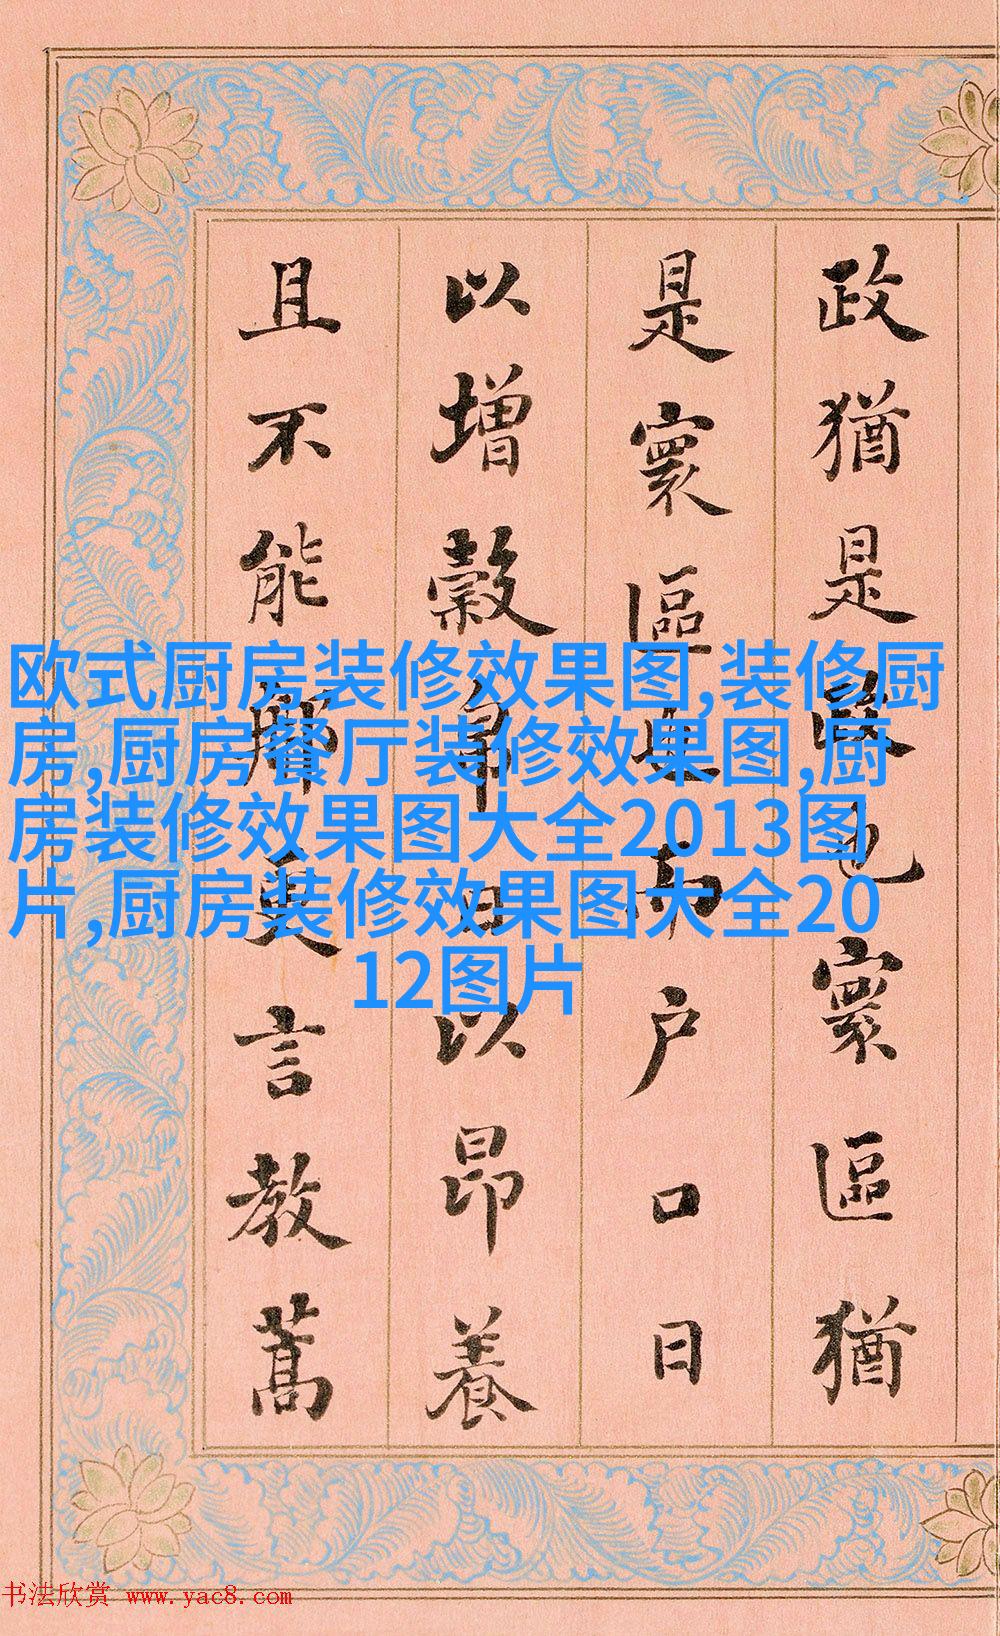 政猶是政也寰區猶
是寰區也而户口日
以增穀帛日以昂養
且不能更言教蒿
欧式厨房装修效果图,装修厨
房,厨房餐厅装修效果图,厨
房装修效果图大全2013图
片,厨房装修效果图大全20
12图片
书法欣赏 www.yac8.com